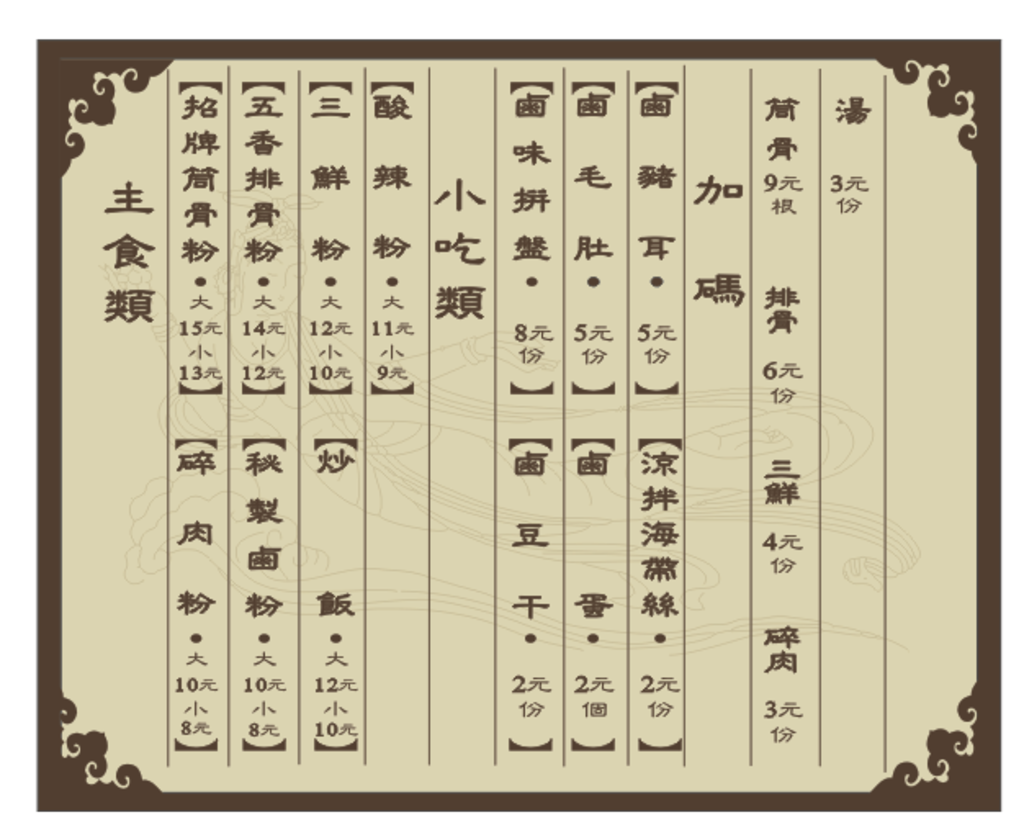 主食類
招牌筒骨粉•大15元小13元
碎肉粉•大10元小8元
五香排骨粉•大14元小12元
秘製鹵粉•大10元小8元
三鮮粉•大12元小10元
炒飯•大12元小10元
酸辣粉•大11元小9元
小吃類
鹵味拼盤•8元份
鹵豆干•2元份
鹵毛肚•5元份
鹵蛋•2元個
鹵豬耳•5元份
涼拌海帶絲•2元份
加碼
筒骨9元根
排骨6元份
三鮮4元份
碎肉3元份
湯3元份